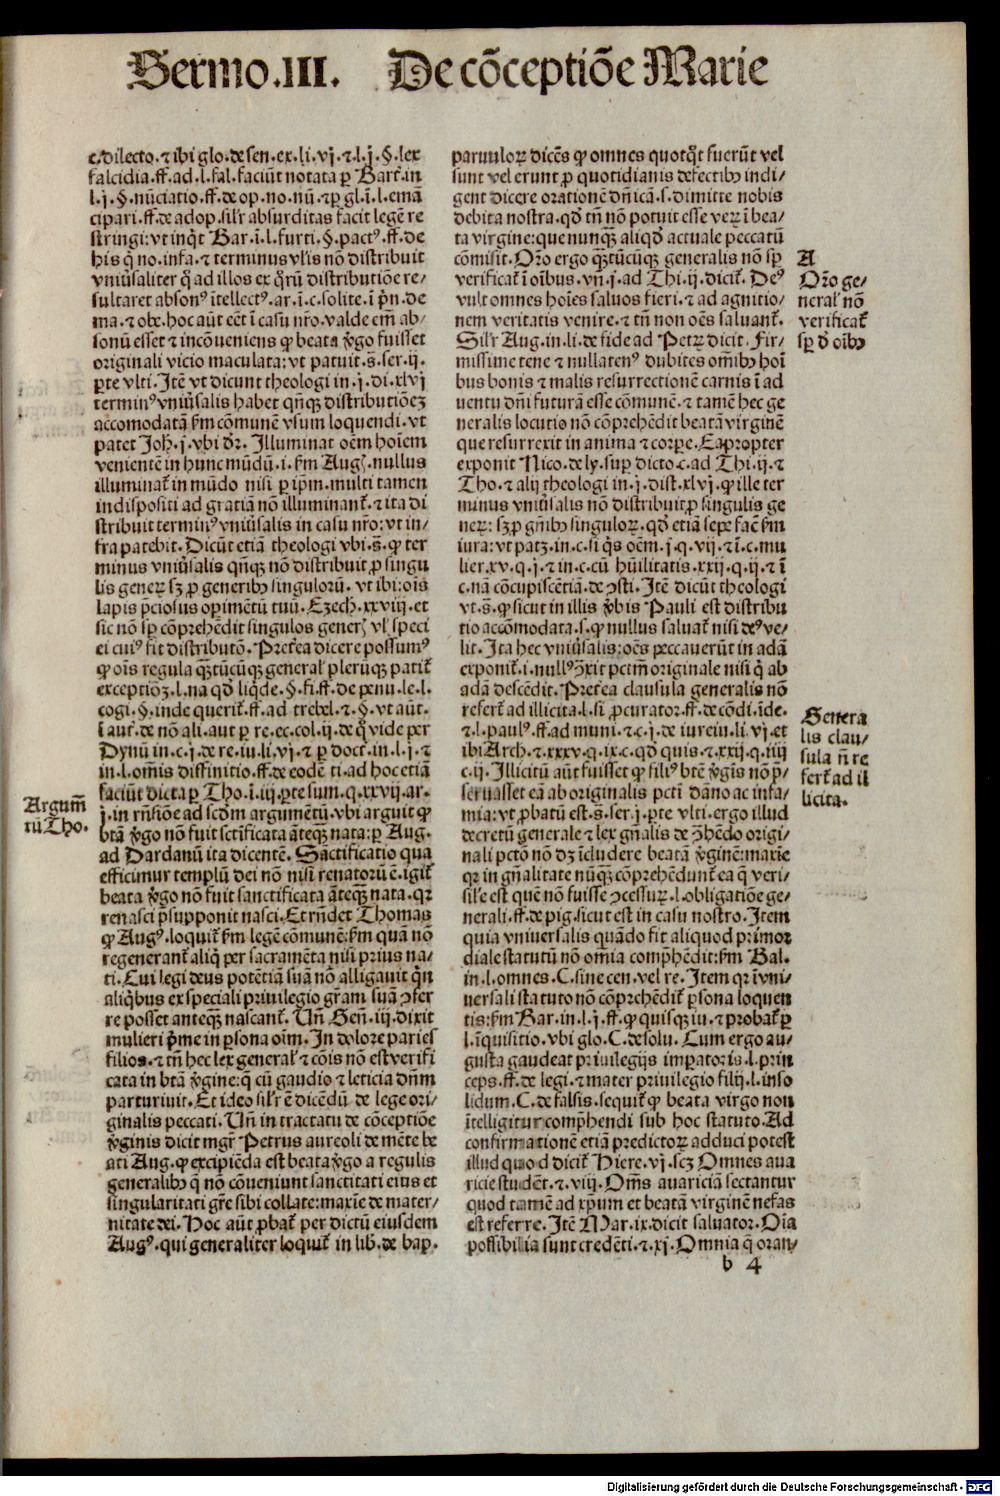 Sermo.III. De cõceptiõe Marie
c.dilecto.⁊ ibi glo.de sen.ex.li.vj.⁊.l.j.§.lex
falcidia.ff.ad.l.fal.faciũt notata ꝑ Bart̃.in
l.j.§.nũciatio.ff.de op.no.nũ.⁊ꝑ gl.ĩ.l.emã
cipari.ff.de adop.sil'r absurditas facit legẽ re
stringi:vt inq̃t Bar.ĩ.l.furti.§.pactꝰ.ff.de
his q̃ no.infa.⁊ terminus vl'is nõ distribuit
vniũsaliter q̃ ad illos ex q̃rũ distributiõe re/
sultaret absonꝰ ĩtellectꝰ.ar.ĩ.c.solite.ĩ pñ.de
ma.⁊ obe.hoc aũt eẽt ĩ casu nr̃o.valde em̃ ab/
sonũ esset ⁊ incõueniens ꝙ beata ṽgo fuisset
originali vicio maculata:vt patuit.s̃.ser.ij.
ꝑte vlti.Itẽ vt dicunt theologi in.j.di.xlvj
terminꝰ vniũsalis habet qñqꝫ distributiõeꝫ
accomodatã ẜm cõmunẽ vsum loquendi.vt
patet Joh̃.j.vbi dr̃.Illuminat oẽm hoĩem
venientẽ in hunc mũdũ.i.ẜm Augꝰ.nullus
illuminat̃ in mũdo nisi ꝑ ip̃m.multi tamen
indispositi ad gratiã nõ illuminant̃.⁊ ita di
stribuit terminꝰ vniũsalis in casu nr̃o:vt in/
fra patebit.Dicũt etiã theologi vbi.s̃.ꝙ ter
minus vniũsalis qñqꝫ nõ distribuit ꝓ singu
lis generꝝ sꝫ ꝓ generibꝰ singulorũ.vt ibi:oĩs
lapis p̃ciosus oꝑimẽtũ tuũ.Ezech.xxviij.et
sic nõ sꝑ cõprehẽdit singulos generꝝ vl' speci
ei cuiꝰ fit distributõ.Preterea dicere possumꝰ
ꝙ oĩs regula q̃ꝫtũcũqꝫ general' plerũqꝫ patit̃
exceptiõꝫ.l.na qd̃ liq̃de.§.fi.ff.de penu.le.l.
cogi.§.inde querit̃.ff.ad trebel.⁊.§.vt aũt.
ĩ aut̃.de nõ ali.aut ꝑ re.ec.col.ij.de q̃ vide per
Dynũ in.c.j.de re.iu.li.vj.⁊ ꝑ doct̃.in.l.j.⁊
in.l.om̃is diffinitio.ff.de eodẽ ti.ad hoc etiã
faciũt dicta ꝑ Tho.ĩ.iij.ꝑte sum.q.xxvij.ar.
j.in rñsiõe ad scdm argumẽtũ.vbi arguit ꝙ
btã ṽgo nõ fuit sctĩficata ãteqꝫ nata:ꝑ Aug.
ad Dardanũ ita dicentẽ.Sactificatio qua
efficimur templũ dei nõ nisi renatorũ ẽ.igit̃
beata ṽgo nõ fuit sanctificata ãteqꝫ nata.qr
renasci p̃supponit nasci.Et rñdet Thomas
ꝙ Augꝰ.loquit̃ ẜm legẽ cõmunẽ:ẜm quã nõ
regenerant̃ aliq̃ per sacramẽta nisi prius na/
ti.Cui legi deus potẽtiã suã nõ alligauit q̃n
aliq̃bus ex speciali priuilegio gr̃am suã ↄfer
re posset anteqꝫ nascant̃.Uñ Geñ.iij.dixit
mulieri p̃me in ꝑsona oĩm.In dolore paries
filios.⁊ tñ hec lex general' ⁊ cõis nõ est verifi
cata in btã ṽgine:q̃ cũ gaudio ⁊ leticia dñm
parturiuit.Et ideo sil'r ẽ dicẽdũ de lege ori/
ginalis peccati.Uñ in tractatu de cõceptiõe
ṽginis dicit mgr̃ Petrus aureoli de mẽte be
ati Aug.ꝙ excipiẽda est beata ṽgo a regulis
generalibꝰ q̃ nõ cõueniunt sanctitati eius et
singularitati gr̃e sibi collate:maxĩe de mater/
nitate dei.Hoc aũt ꝓbat̃ per dictũ eiusdem
Augꝰ.qui generaliter loquit̃ in lib.de bap.
Argum̃
tũ Tho.
paruulorꝝ dicẽs ꝙ omnes quotq̃t fuerũt vel
sunt vel erunt ꝓ quotidianis defectibꝰ indi/
gent dicere orationẽ dñicã.s.dimitte nobis
debita nostra.qd̃ tñ nõ potuit esse verꝝ ĩ bea/
ta virgine:que nunqꝫ aliqd̃ actuale peccatũ
cõmisit.Or̃o ergo q̃ꝫtũcũqꝫ generalis nõ sꝑ
verificat̃ ĩ oĩbus.vñ.j.ad Thi.ij.dicit̃.Deꝰ
vult omnes hoĩes saluos fieri.⁊ ad agnitio/
nem veritatis venire.⁊ tñ non oẽs saluant̃.
Sil'r Aug.in.li.de fide ad Petrꝝ dicit.Fir/
missime tene ⁊ nullatenꝰ dubites om̃ibꝰ hoĩ
bus bonis ⁊ malis resurrectionẽ carnis ĩ ad
uentu dñi futurã esse cõmunẽ.⁊ tamẽ hec ge
neralis locutio nõ cõprehẽdit beatã virginẽ
que resurrexit in anima ⁊ corꝑe.Eapropter
exponit Nico.de ly.suꝑ dicto.c.ad Thi.ij.⁊
Tho.⁊ alij theologi in.j.dist.xlvj.ꝙ ille ter
minus vniũsalis nõ distribuit ꝓ singulis ge
nerꝝ:sꝫ ꝓ gñibꝰ singulorꝝ.qd̃ etiã sepe fac̃ ẜm
iura:vt patꝫ.in.c.si q̃s oẽm.j.q.vij.⁊ ĩ.c.mu
lier.xv.q.j.⁊ in.c.cũ hũilitatis.xxij.q.ij.⁊ ĩ
c.nã cõcupiscẽtiã.de ↄsti.Itẽ dicũt theologi
vt.s̃.ꝙ sicut in illis ṽbis Pauli est distribu
tio accõmodata.s.ꝙ nullus saluat̃ nisi deꝰ ve/
lit.Ita hec vniũsalis:oẽs peccauerũt in adã
exponit̃.i.nullꝰ ↄ̃xit pctm̃ originale nisi q̃ ab
adã descẽdit.Preterea clausula generalis nõ
refert̃ ad illicita.l.si ꝓcurator.ff.de cõdi.ĩde.
⁊.l.paulꝰ.ff.ad muni.⁊.c.j.de iureiu.li.vj.et
ibi Arch.⁊.xxxv.q.ix.c.qd̃ quis.⁊.xxij.q.iiij
c.ij.Illicitũ aũt fuisset ꝙ filiꝰ btẽ ṽgĩs nõ p̃/
seruasset eã ab originalis pcti dãno ac infa/
mia:vt ꝓbatũ est.s̃.ser.j.ꝑte vlti.ergo illud
decretũ generale ⁊ lex gñalis de ↄ̃hẽdo origi/
nali pctõ nõ dꝫ ĩcludere beatã ṽginẽ:maxĩe
qr in gñalitate nũqꝫ cõprehẽdunt̃ ea q̃ veri/
sil'e est quẽ nõ fuisse ↄcessurꝝ.l.obligatiõe ge/
nerali.ff.de pig.sicut est in casu nostro.Item
quia vniuersalis quãdo fit aliquod primor
diale statutũ nõ om̃ia comp̃hẽdit:ẜm Bal.
in.l.omnes.C.sine cen.vel re.Item qr ĩ vni/
uersali statuto nõ cõprehẽdit̃ ꝑsona loquen
tis:ẜm Bar.in.l.j.ff.ꝙ quisqꝫ iu.⁊ probat̃ ꝑ
l.ĩquisitio.vbi glo.C.de solu.Cum ergo au/
gusta gaudeat priuilegijs imꝑatoris.l.prin
ceps.ff.de legi.⁊ mater priuilegio filij.l.inso
lidum.C.de falsis.sequit̃ ꝙ beata virgo non
ĩtelligitur comp̃hendi sub hoc statuto.Ad
confirmationẽ etiã predictorꝝ adduci potest
illud quod dicit̃ Hiere.vj.scꝫ Omnes aua
ricie studẽt.⁊.viij.Om̃s auariciã sectantur
quod tamẽ ad xp̃um et beatã virginẽ nefas
est referre.Itẽ Mar.ix.dicit saluator.Oĩa
possibilia sunt credẽti.⁊.xj.Omnia q̃ oran/
A
Or̃o ge/
neral' nõ
verificat̃
sꝑ d̃ oĩbꝰ
Genera
lis clau/
sula ñ re
fert̃ ad il
licita.
b 4
Digitalisierung gefördert durch die Deutsche Forschungsgemeinschaft - DFG